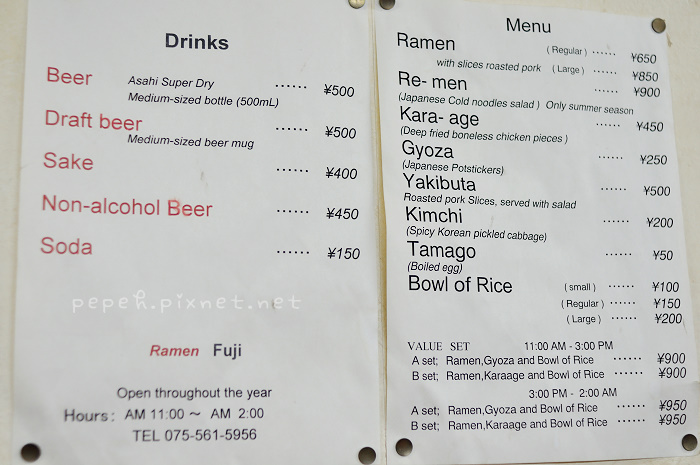 Drinks
Beer Asahi Super Dry ...... ¥500
Medium-sized bottle (500mL)
Draft beer ...... ¥500
Medium-sized beer mug
Sake ...... ¥400
Non-alcohol Beer ...... ¥450
Soda ...... ¥150
pepeh.pixnet.net
Ramen Fuji
Open throughout the year
Hours: AM 11:00 ～ AM 2:00
TEL 075-561-5956
Menu
Ramen (Regular) ...... ¥650
with slices roasted pork (Large) ...... ¥850
Re-men ...... ¥900
(Japanese Cold noodles salad) Only summer season
Kara-age ...... ¥450
(Deep fried boneless chicken pieces)
Gyoza ...... ¥250
(Japanese Potstickers)
Yakibuta ...... ¥500
Roasted pork Slices, served with salad
Kimchi ...... ¥200
(Spicy Korean pickled cabbage)
Tamago ...... ¥50
(Boiled egg)
Bowl of Rice (small) ...... ¥100
(Regular) ...... ¥150
(Large) ...... ¥200
VALUE SET 11:00 AM - 3:00 PM
A set; Ramen,Gyoza and Bowl of Rice ...... ¥900
B set; Ramen,Karaage and Bowl of Rice ...... ¥900
3:00 PM - 2:00 AM
A set; Ramen,Gyoza and Bowl of Rice ...... ¥950
B set; Ramen,Karaage and Bowl of Rice ...... ¥950